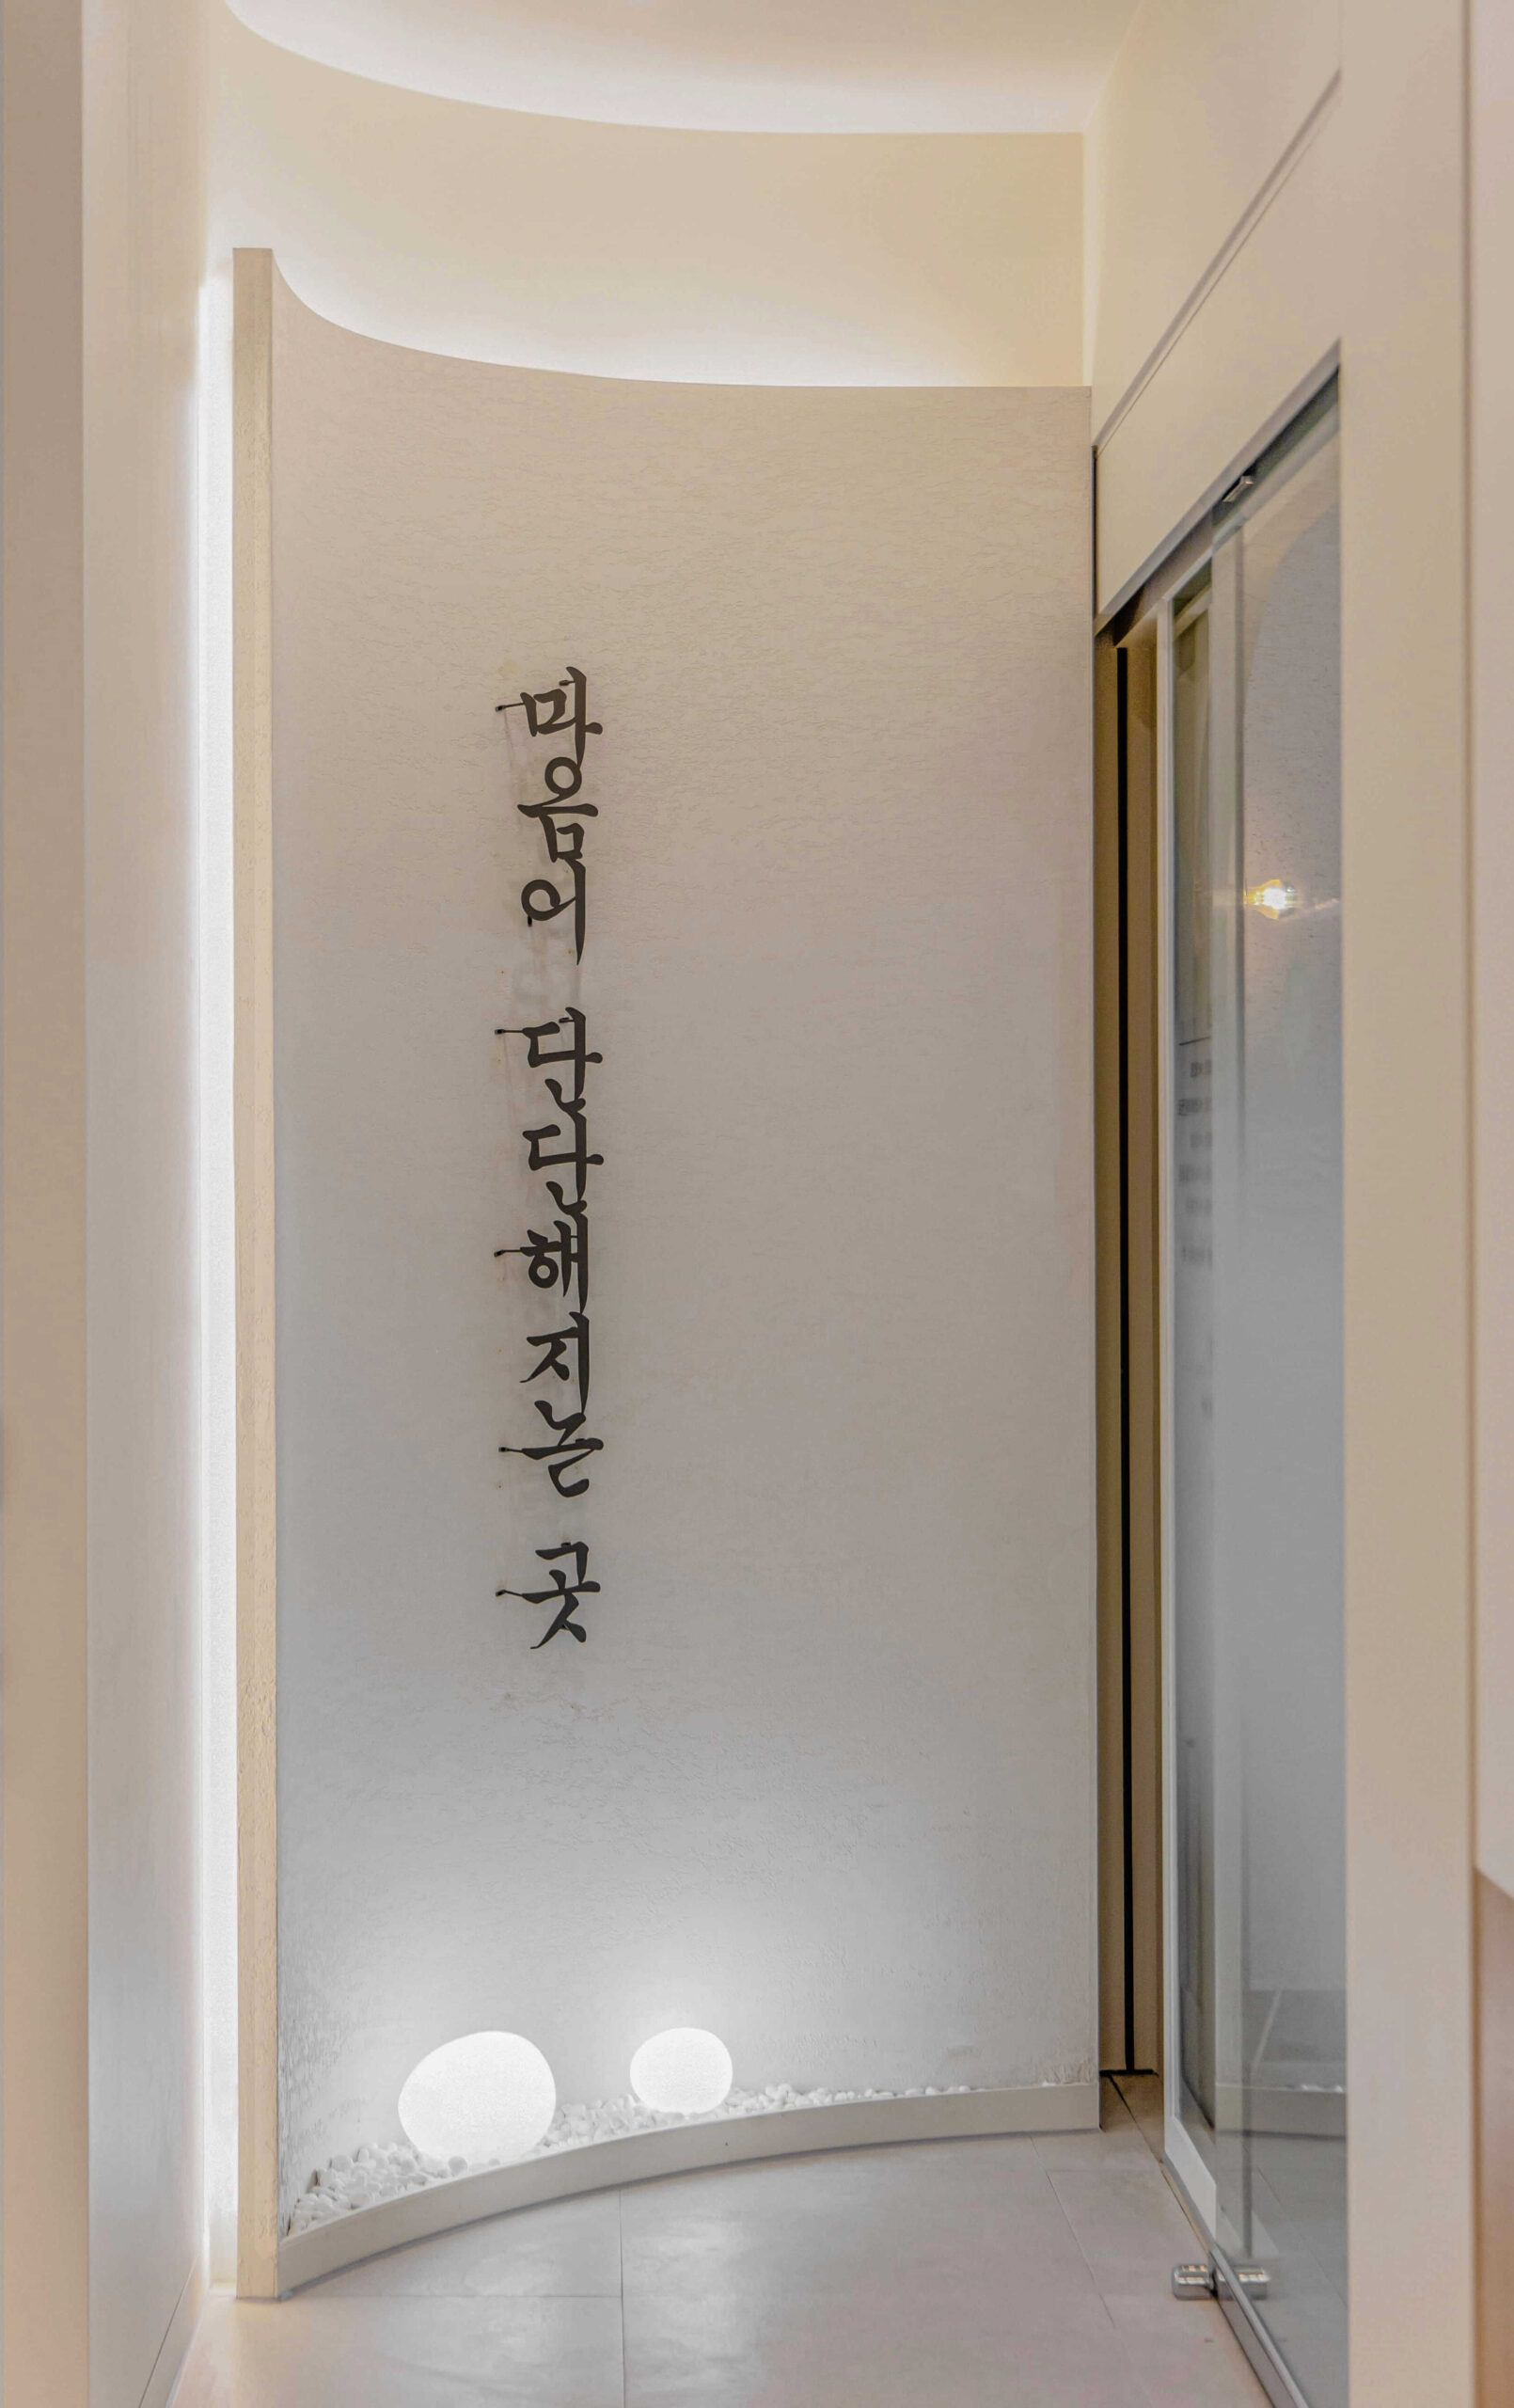 마음이 단단해지는 곳